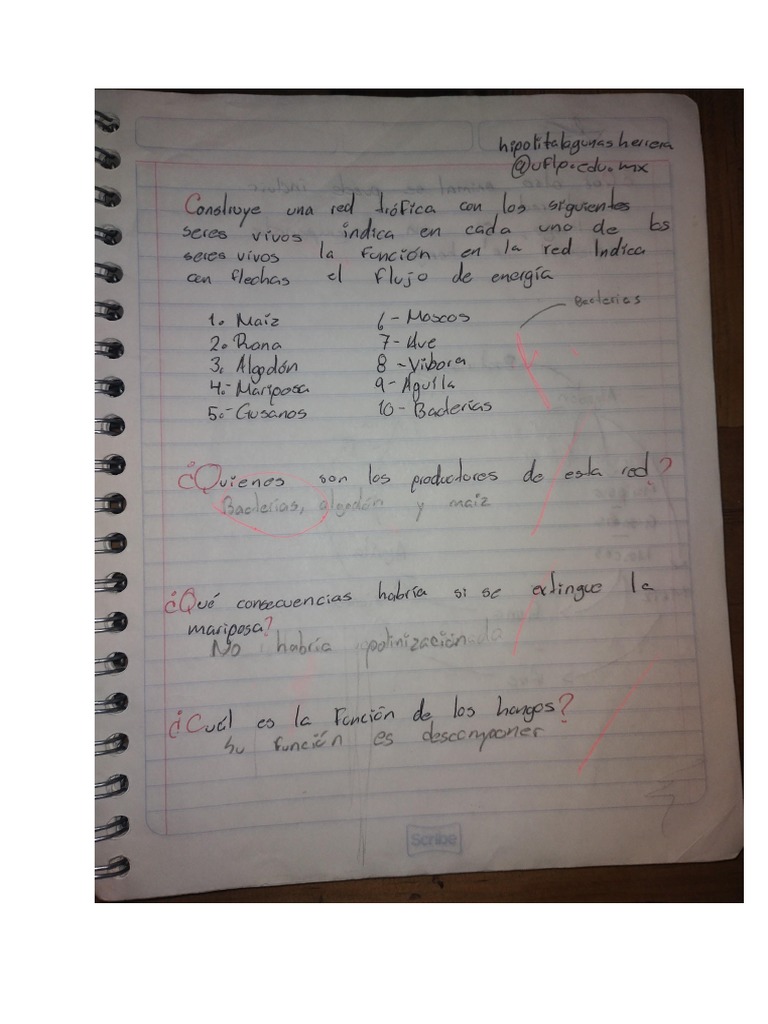 hipolitalagunasherrera
@uflp.edu.mx
Construye una red trófica con los siguientes
seres vivos indica en cada uno de los
seres vivos la función en la red Indica
con flechas el flujo de energía
Bacterias
1. Maíz
2. Rana
3. Algodón
4.- Mariposa
5.- Gusanos
6 - Moscos
7 - Ave
8 - Vibora
9 - Aguila
10 - Bacterias
¿Quienes son los productores de esta red?
Bacterias, algodón y maiz
¿Qué consecuencias habría si se extingue la
mariposa?
No habría polinización
¿Cuál es la Función de los hongos?
Su función es descomponer
Scribe